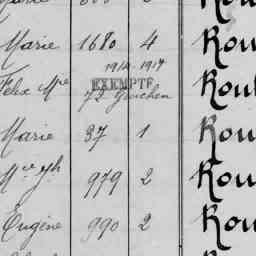 Marie 1680 4 Rou
1914-1917
Félix Mie EXEMPTE Rou
72 Guichen
Marie 37 1 Rou
Mce Jh 979 2 Rou
Eugène 990 2 Rou